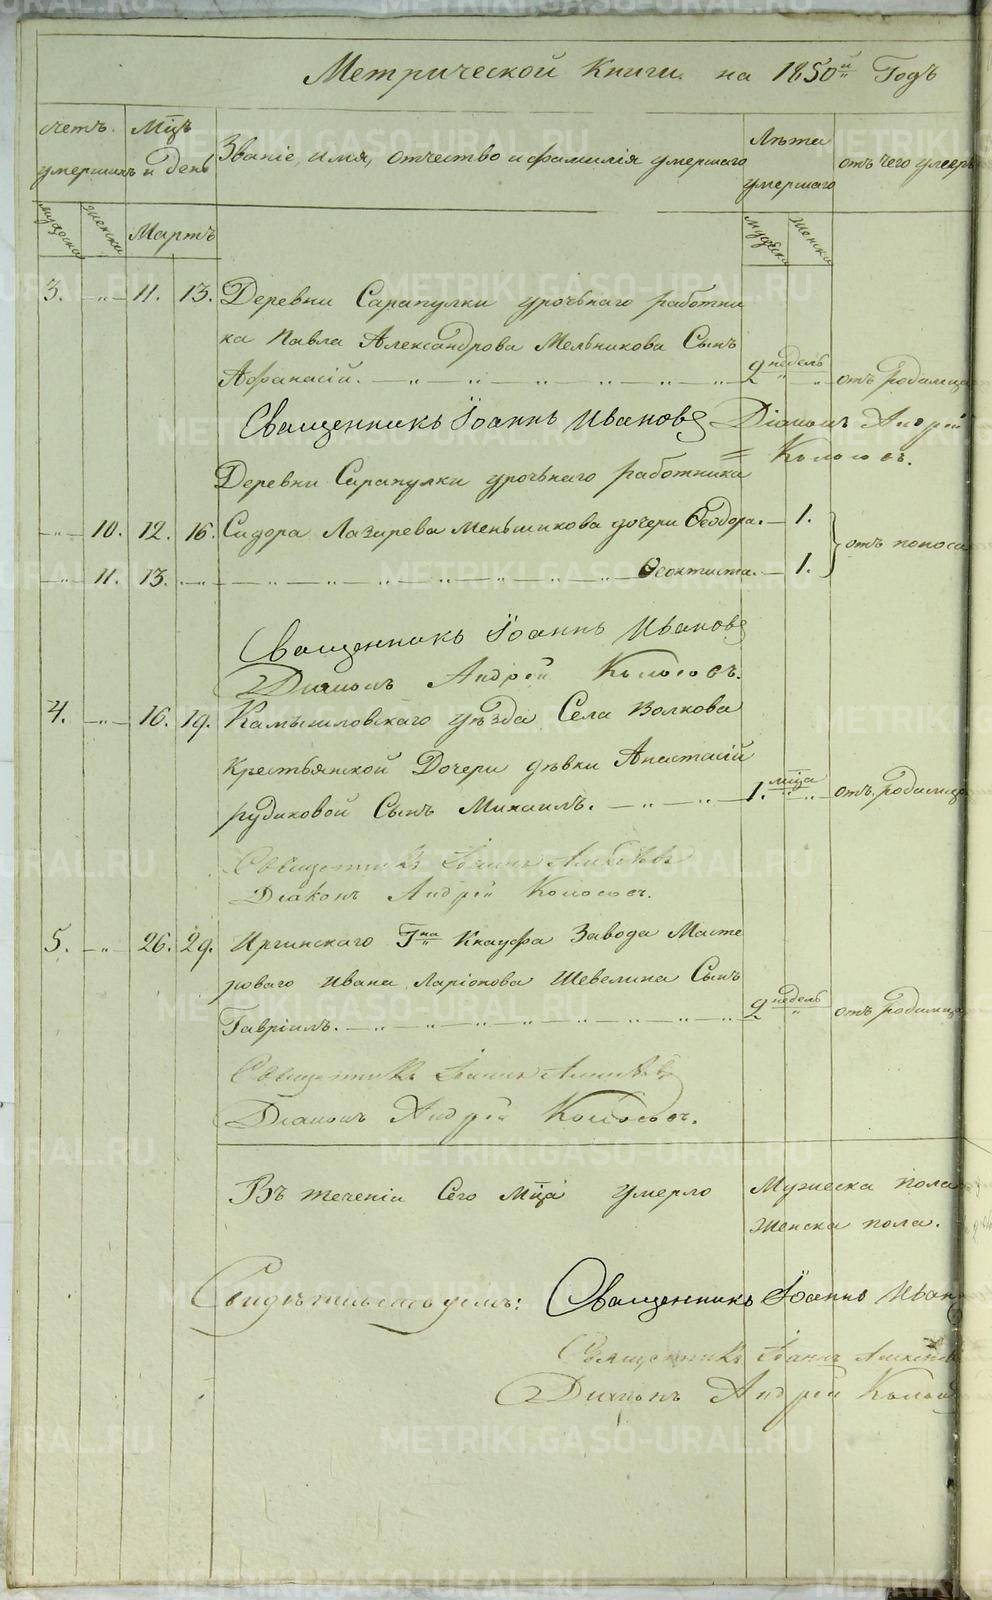 Метрической Книги на 1850й Годъ
счетъ умершихъ Мцъ и день Званіе, имя, отчество и фамилія умершаго Лѣта умершаго отъ чего умеръ
мужеска женска Мартъ мужеска женска
3. — „ — 11. 13. Деревни Сарапулки урочьнаго работни
ка Павла Александрова Мельникова Сынъ
Афанасій. — „ — „ — „ — „ — „ — „ 2 недель „ отъ родимца
Священникъ Іоаннъ Ивановъ Діаконъ Андрей
Колосовъ.
Деревни Сарапулки урочьнаго работника
— „ — 10. 12. 16. Сидора Лазарева Меньшикова дочери Ѳеодора. — 1.
отъ поноса
— „ — 11. 13. — „ — „ — „ — „ — „ — „ — „ — Ѳеоктиста. — 1.
Священникъ Іоаннъ Ивановъ
Діаконъ Андрей Колосовъ.
4. — „ — 16. 19. Камышловскаго уѣзда Села Волкова
Крестьянской Дочери дѣвки Анастасіи
рудаковой Сынъ Михаилъ. — „ — „ 1. мца „ отъ родимца
Священникъ Іоаннъ
Діаконъ Андрей Колосовъ.
5. — „ — 26. 29. Иргинскаго Гна Кнауфа Завода Масте
роваго Ивана Ларіонова Шевелина Сынъ
Гавріилъ. — „ — „ — „ — „ — „ — „ 2 недель „ отъ родимца
Священникъ Іоаннъ
Діаконъ Андрей Колосовъ.
Въ теченіи Сего Мца умерло Мужеска пола
Женска пола.
Свидѣтельствуемъ: Священникъ Іоаннъ Иван
Священникъ Іоаннъ
Діаконъ Андрей Колосов
METRIKI.GASO-URAL.RU